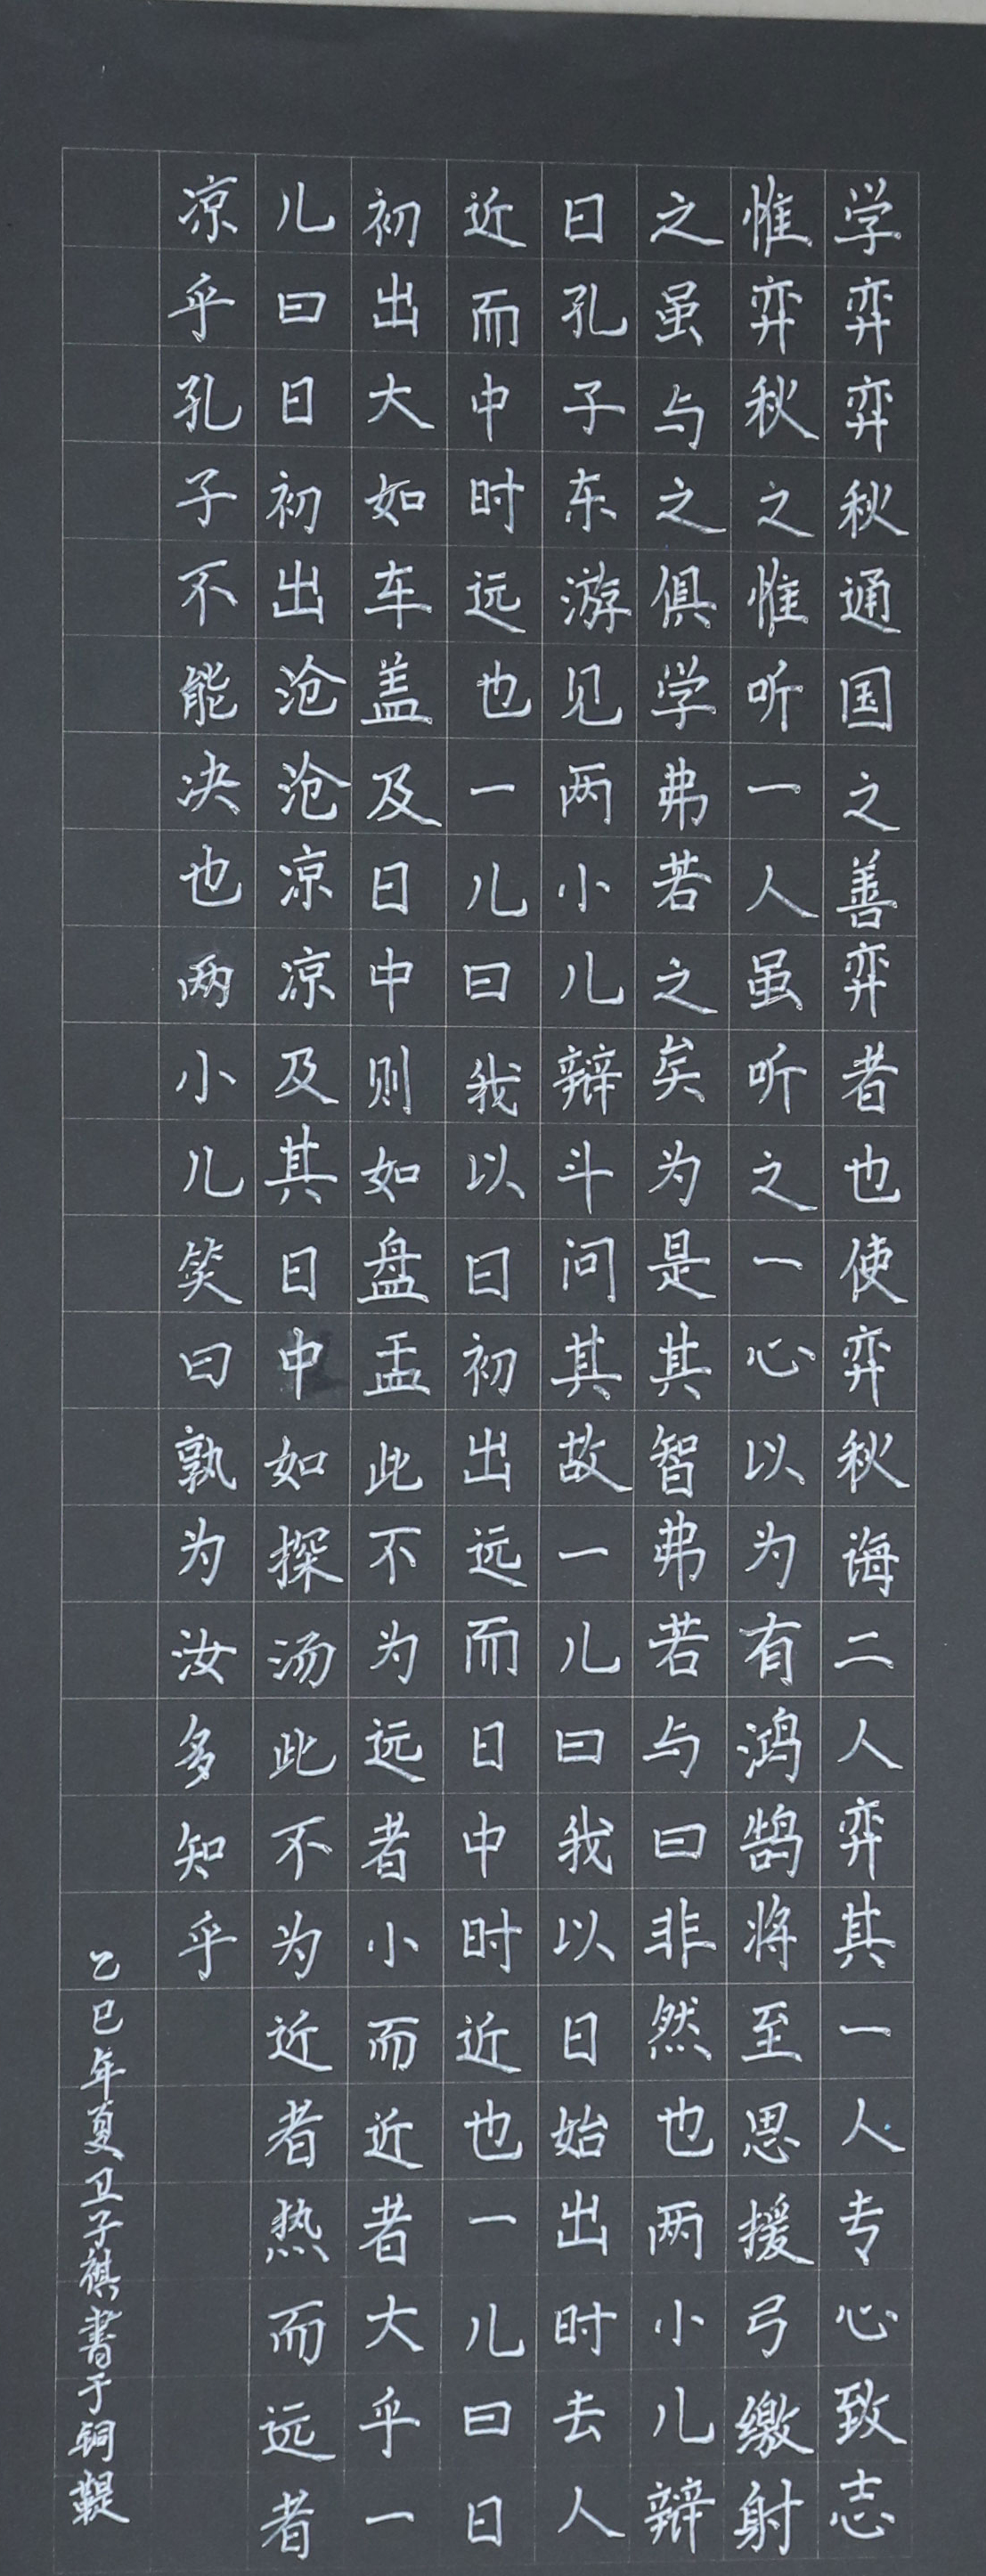 学弈弈秋通国之善弈者也使弈秋诲二人弈其一人专心致志
惟弈秋之惟听一人虽听之一心以为有鸿鹄将至思援弓缴射
之虽与之俱学弗若之矣为是其智弗若与曰非然也两小儿辩
日孔子东游见两小儿辩斗问其故一儿曰我以日始出时去人
近而中时远也一儿曰我以日初出远而日中时近也一儿曰日
初出大如车盖及日中则如盘盂此不为远者小而近者大乎一
儿曰日初出沧沧凉凉及其日中如探汤此不为近者热而远者
凉乎孔子不能决也两小儿笑曰孰为汝多知乎
乙巳年夏卫子祺书于铜鞮